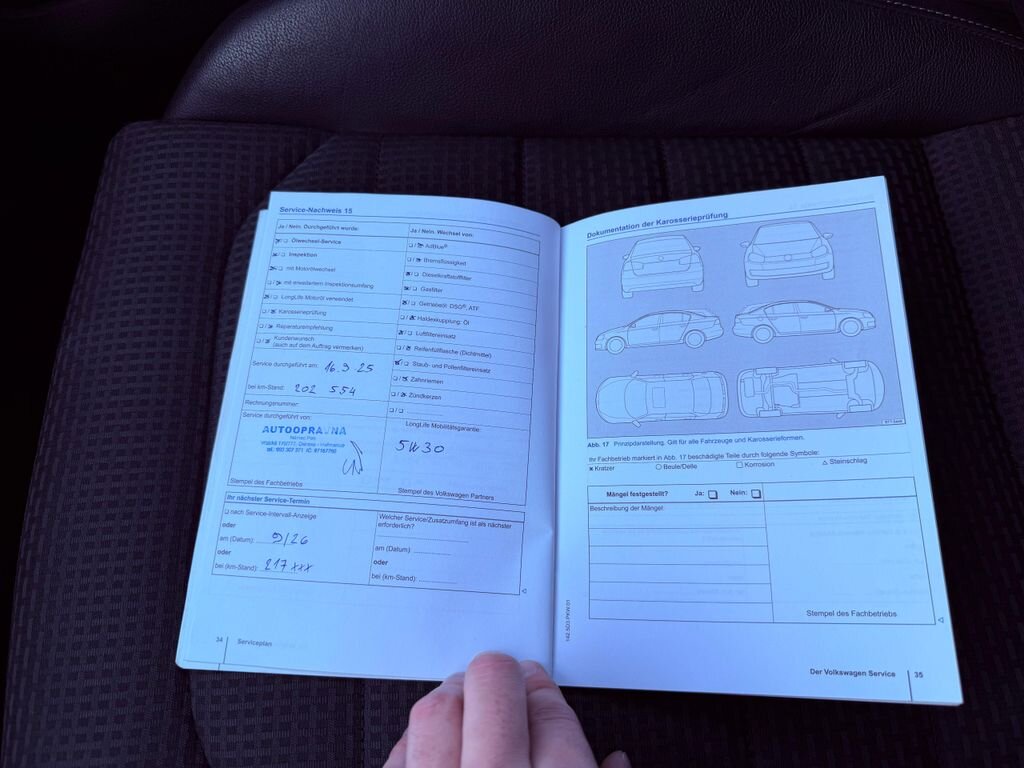 Service-Nachweis 15
Ja / Nein. Durchgeführt wurde:
Ölwechsel-Service
Inspektion
mit Motorölwechsel
mit erweitertem Inspektionsumfang
LongLife Motoröl verwendet
Karosserieprüfung
Reparaturempfehlung
Kundenwunsch
(auch auf dem Auftrag vermerken)
Service durchgeführt am: 16.9.25
bei km-Stand: 202 554
Rechnungsnummer:
Service durchgeführt von:
AUTOOPRAVNA
Stempel des Fachbetriebs
Ja / Nein. Wechsel von:
AdBlue®
Bremsflüssigkeit
Dieselkraftstofffilter
Gasfilter
Getriebeöl: DSG®, ATF
Haldexkupplung: Öl
Luftfiltereinsatz
Reifenfüllflasche (Dichtmittel)
Staub- und Pollenfiltereinsatz
Zahnriemen
Zündkerzen
LongLife Mobilitätsgarantie:
5W30
Stempel des Volkswagen Partners
Ihr nächster Service-Termin
nach Service-Intervall-Anzeige
oder
am (Datum): 9/26
oder
bei (km-Stand): 217 xxx
Welcher Service/Zusatzumfang ist als nächster
erforderlich?
am (Datum):
oder
bei (km-Stand):
34 Serviceplan
Dokumentation der Karosserieprüfung
Abb. 17 Prinzipdarstellung. Gilt für alle Fahrzeuge und Karosserieformen.
Ihr Fachbetrieb markiert in Abb. 17 beschädigte Teile durch folgende Symbole:
x Kratzer ○ Beule/Delle □ Korrosion △ Steinschlag
Mängel festgestellt? Ja: □ Nein: □
Beschreibung der Mängel:
Stempel des Fachbetriebs
142.5D3.PKW.01
Der Volkswagen Service 35